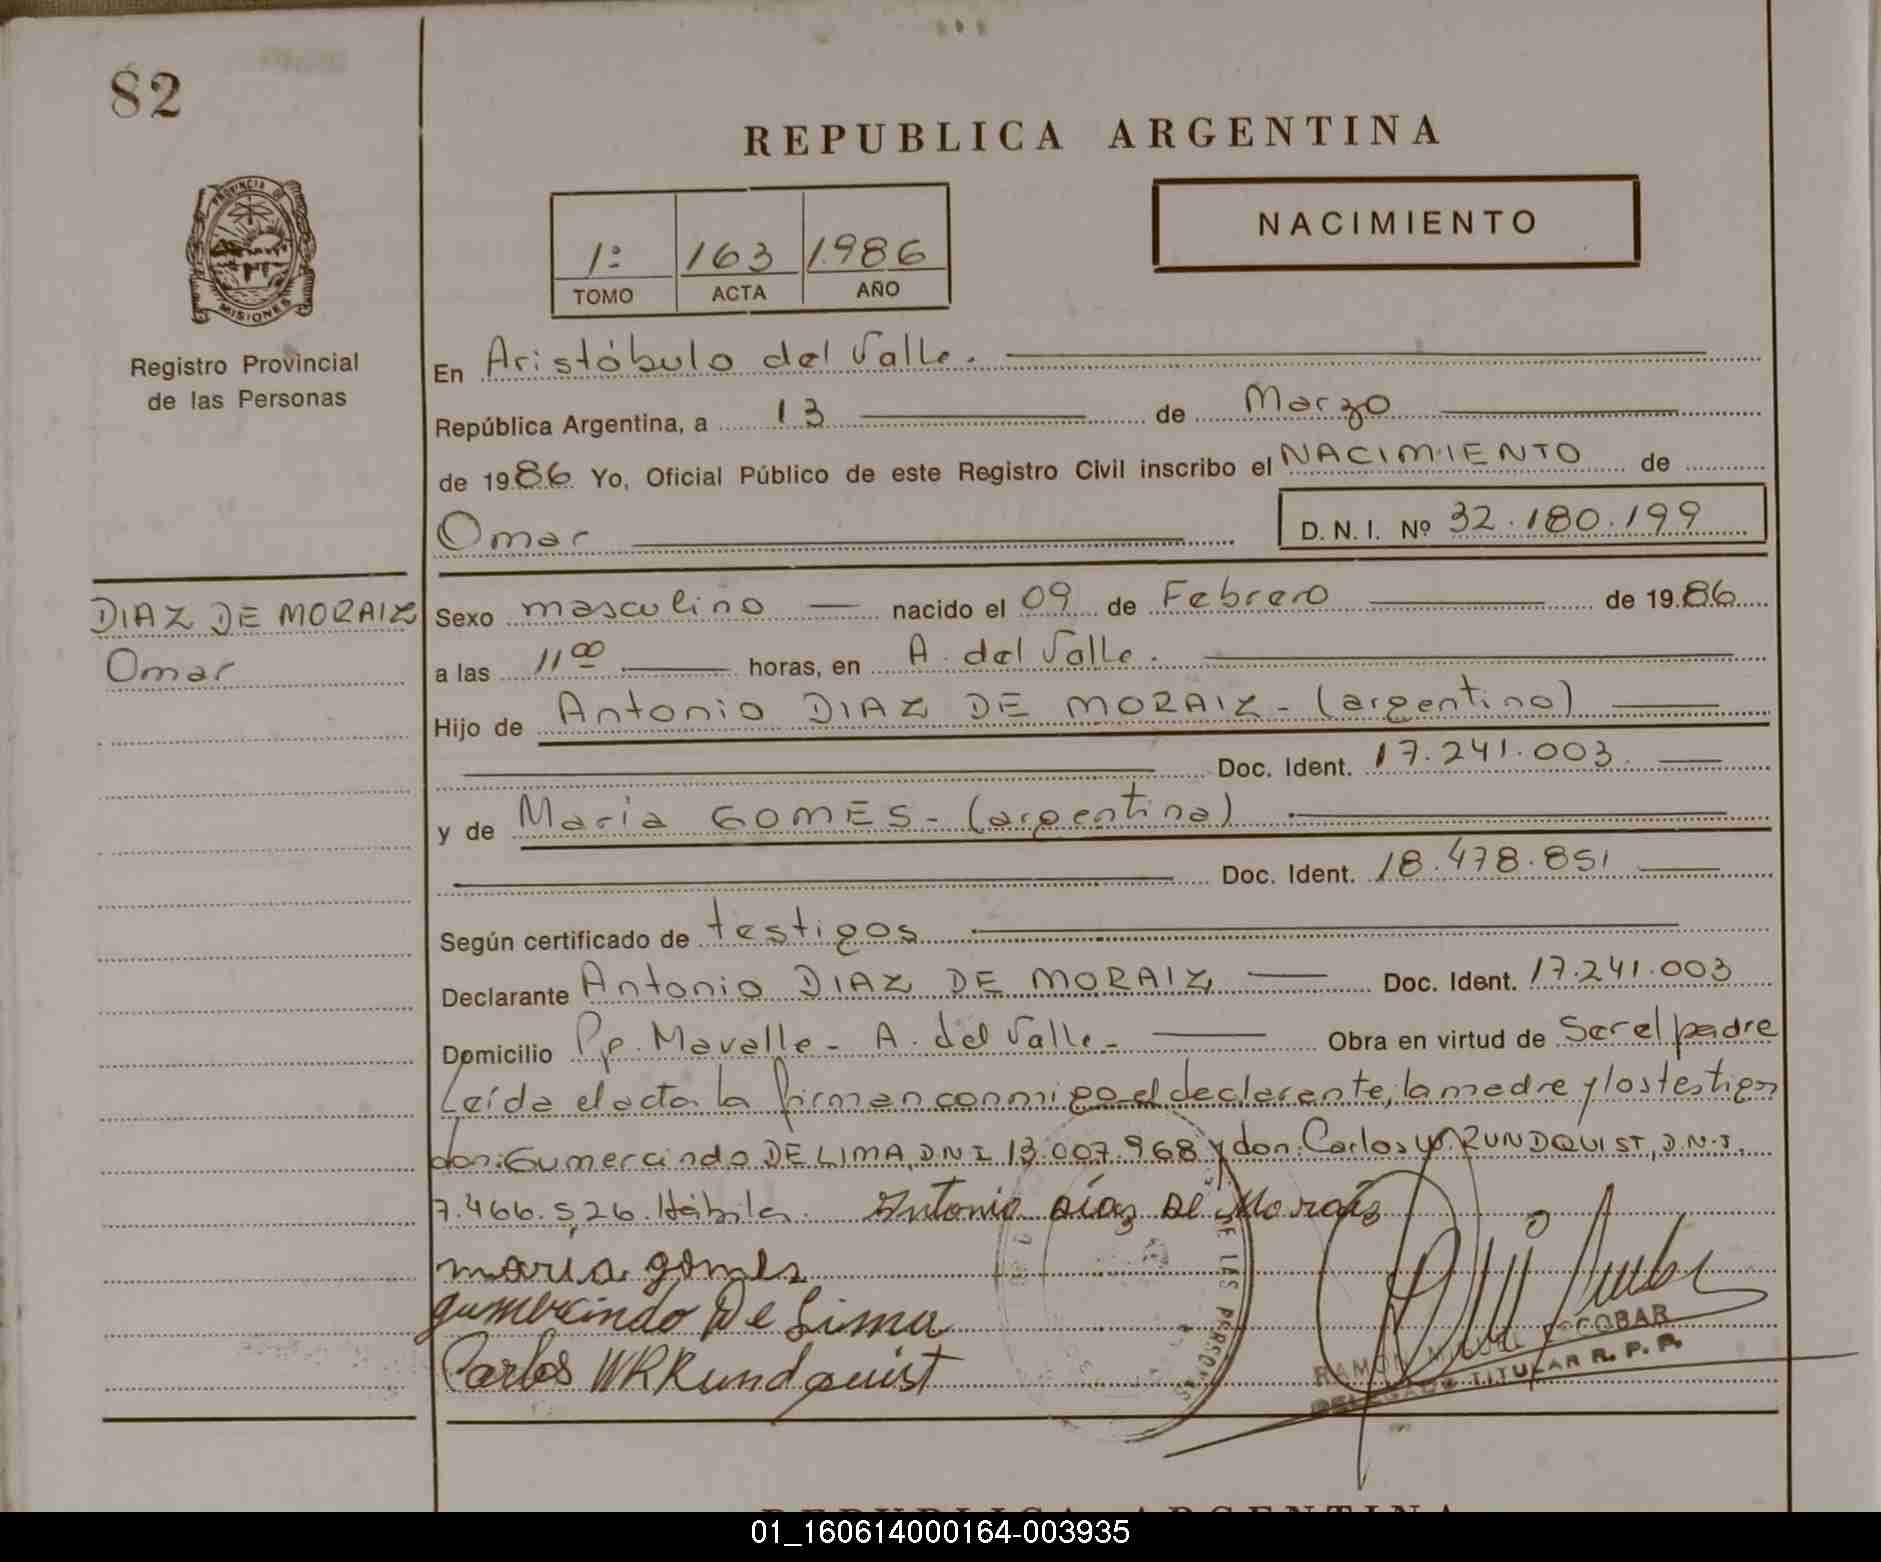 82
REPUBLICA ARGENTINA
1º 163 1986
TOMO ACTA AÑO
NACIMIENTO
PROVINCIA DE MISIONES
Registro Provincial
de las Personas
En Aristóbulo del Valle.
República Argentina, a 13 de Marzo
de 1986 Yo, Oficial Público de este Registro Civil inscribo el NACIMIENTO de
Omar D.N.I. Nº 32.180.199
DIAZ DE MORAIZ
Omar
Sexo masculino nacido el 09 de Febrero de 1986
a las 11 00 horas, en A. del Valle.
Hijo de Antonio DIAZ DE MORAIZ - (argentino)
Doc. Ident. 17.241.003
y de Maria GOMES - (argentina)
Doc. Ident. 18.478.851
Según certificado de testigos
Declarante Antonio DIAZ DE MORAIZ Doc. Ident. 17.241.003
Domicilio Pp. Mavalle - A. del Valle - Obra en virtud de Ser el padre
Leída el acta la firman conmigo el declarante, la madre y los testigos
don: Gumercindo DE LIMA, D.N.I 13.007.968 y don: Carlos W. RUNDQUIST, D.N.I.
7.466.526. Hábiles. Antonio Díaz De Moraiz
maria gomes
gumercindo De Lima
Carlos WR Rundquist
DE LAS PERSONAS
RAMON MIGUEL ESCOBAR
DELEGADO TITULAR R. P. P.
REPUBLICA ARGENTINA
01_160614000164-003935